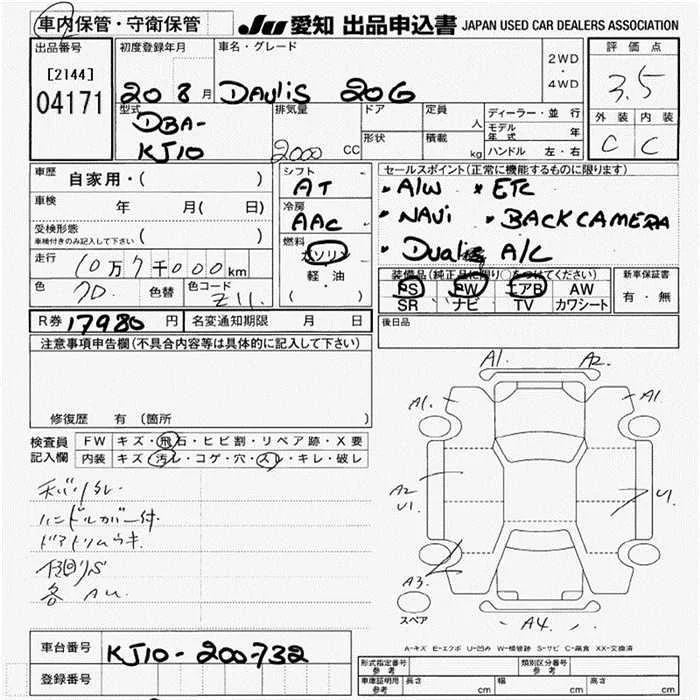 車内保管・守衛保管
JU 愛知 出品申込書 JAPAN USED CAR DEALERS ASSOCIATION
出品番号
[2144]
04171
初度登録年月
20 8 月
車名・グレード
DAuliS 20G
2WD
・
4WD
評価点
3.5
外装 内装
C C
型式
DBA-
KJ10
排気量
2000 CC
ドア
形状
定員 人
積載 kg
ディーラー・並行
モデル年式 年
ハンドル 左・右
車歴 自家用・( )
車検 年 月( 日)
受検形態
車検付きのみ記入して下さい ( )
走行 10万7千000km
色 色替 色コード
Z11.
シフト
AT
冷房
AAC
燃料
ガソリン
軽・油
( )
セールスポイント(正常に機能するものに限ります)
・A/W ・ETC
・NAVi ・BACKCAMERA
・DuAliS A/C
装備品(純正品に限り○をつけてください)
PS PW エアB AW
SR ナビ TV カワシート
新車保証書
有・無
R券 17980 円 名変通知期限 月 日
後日品
注意事項申告欄(不具合内容等は具体的に記入して下さい)
修復歴 有 (箇所
検査員 FW キズ・飛石・ヒビ割・リペア跡・X要
記入欄 内装 キズ・汚レ・コゲ・穴・スレ・キレ・破レ
ハンドルカバー付
ドアトリムウキ
各 AU.
A1. A2.
A1. A1.
A2
U1. U1.
A3.
A4.
スペア
A-キズ E-エクボ U-凹み W-補修跡 S-サビ C-腐食 XX-交換済
車台番号 KJ10-200732
登録番号
形式指定番号 参考 類別区分番号 参考
車庫証明用 参考 長さ cm 幅 cm 高さ cm